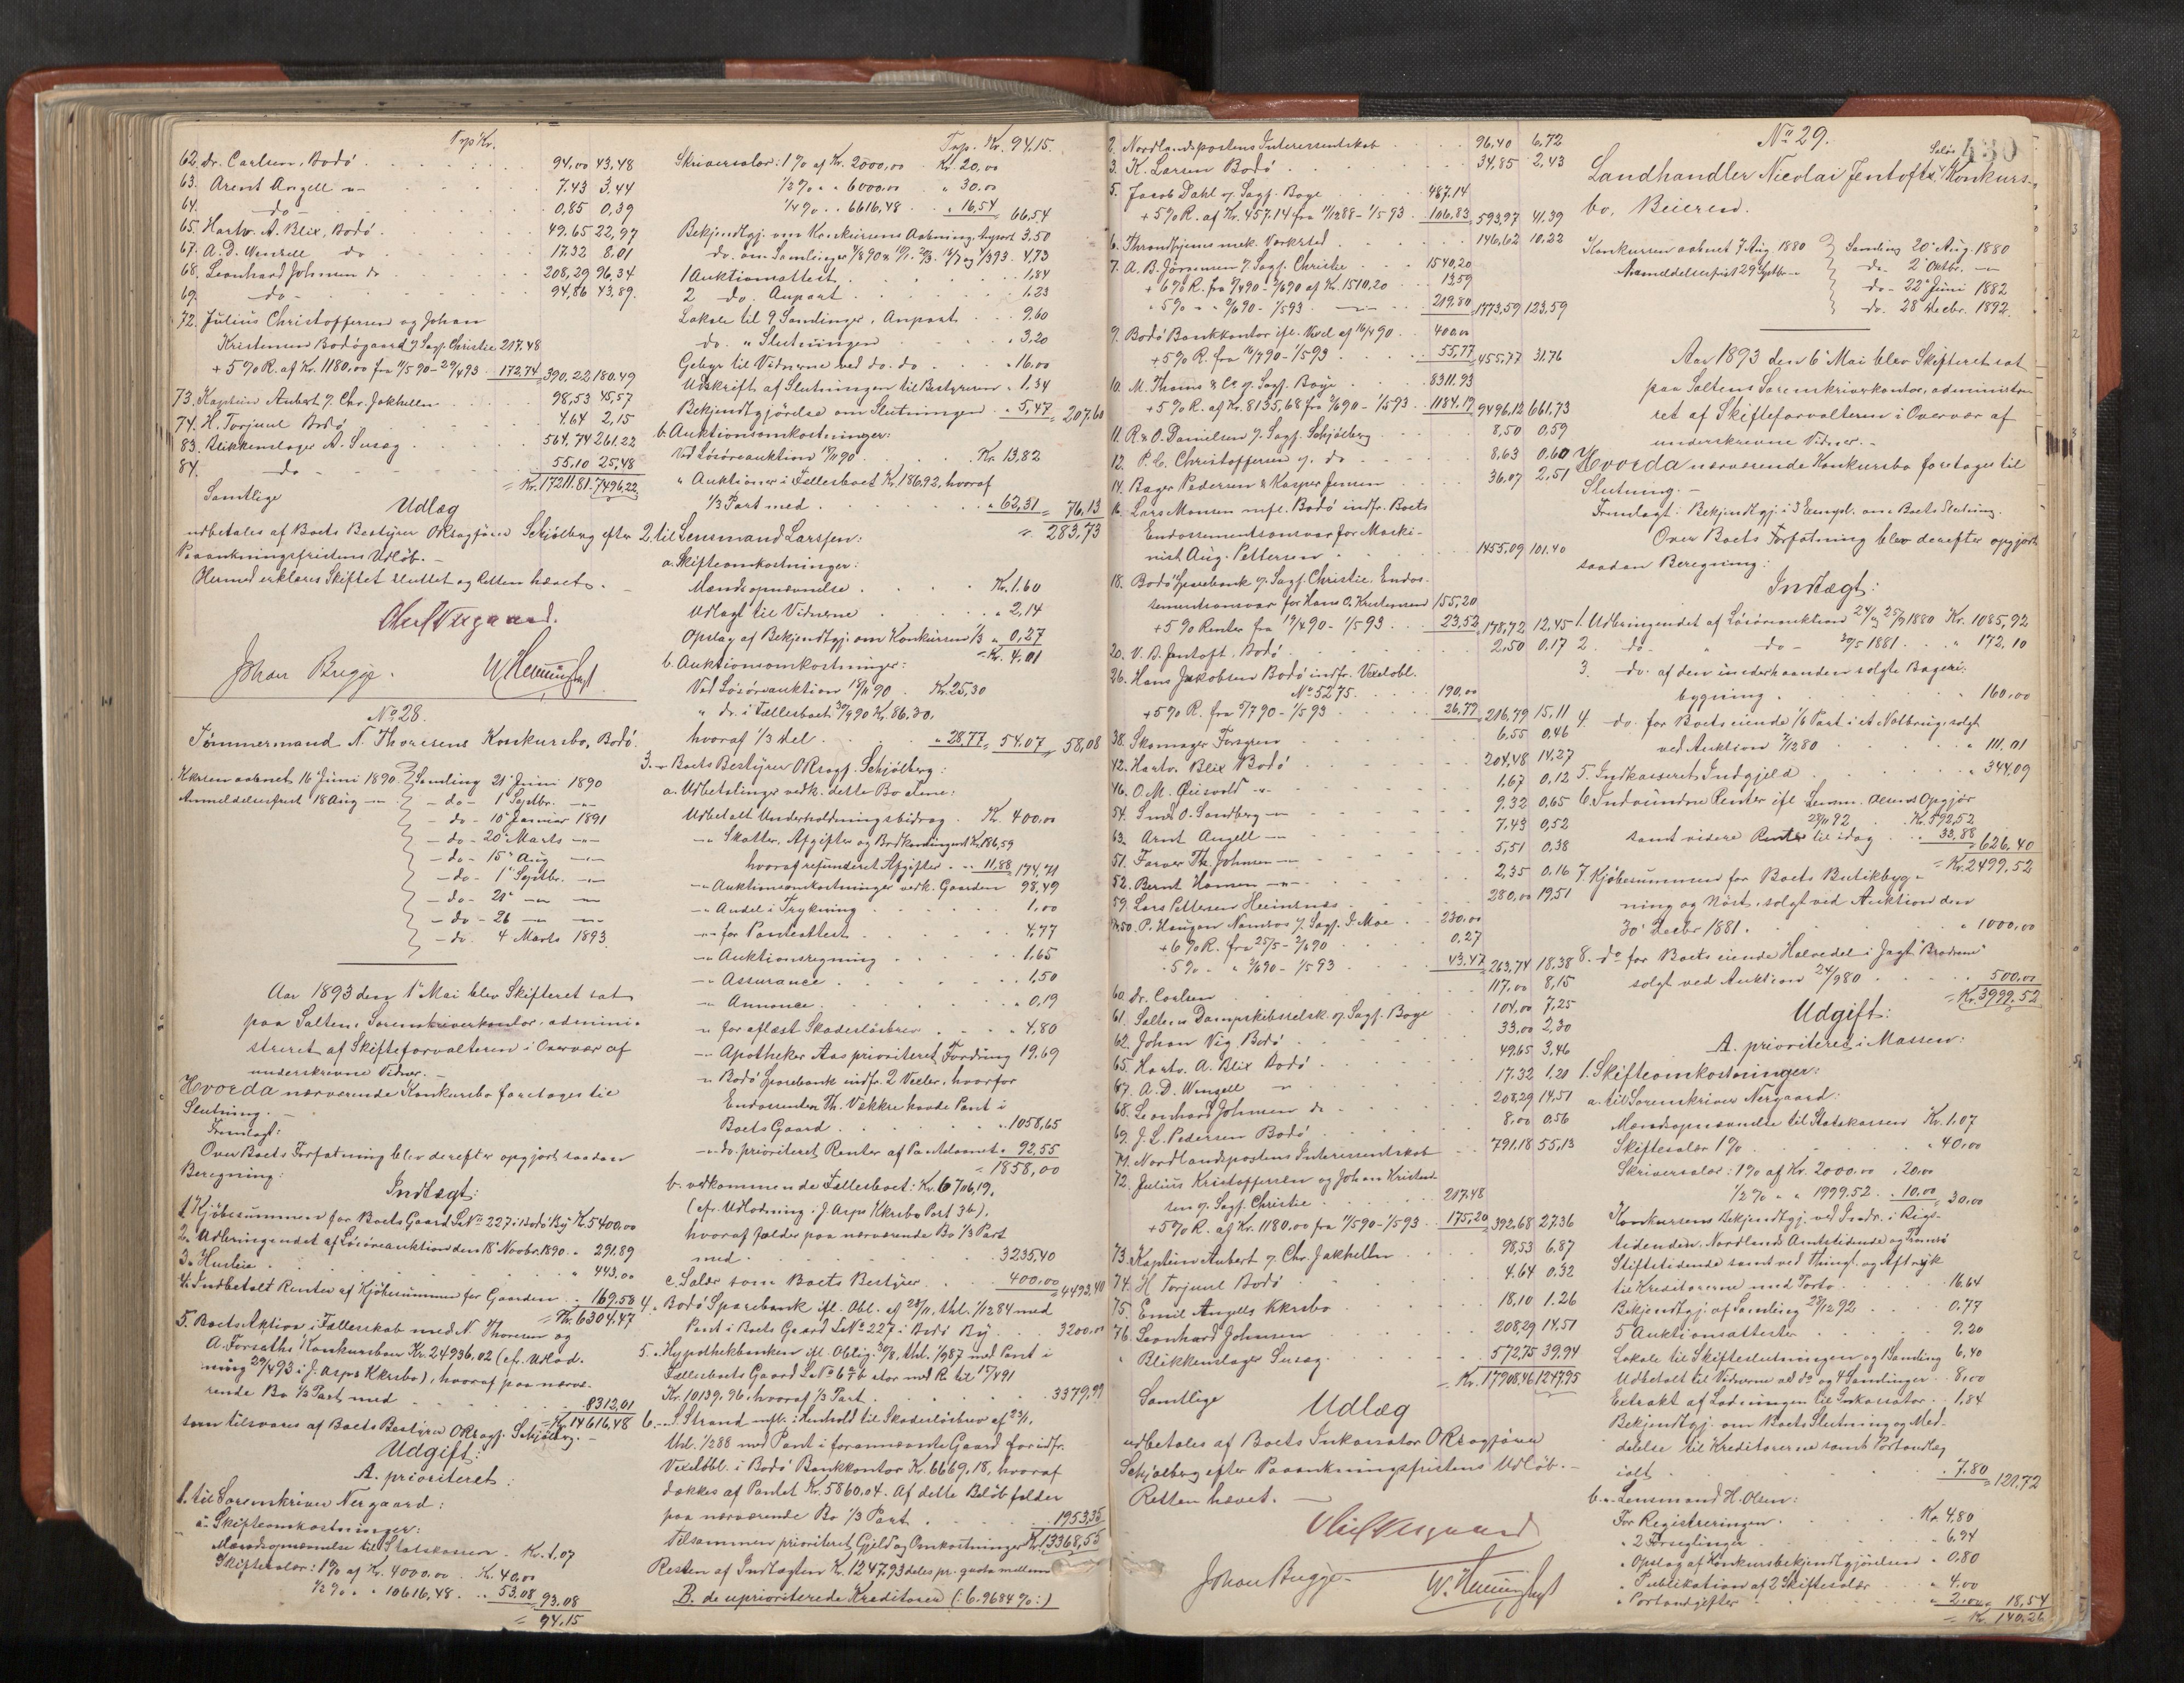 Trp. Kr.
62. Dr. Carlsen, Bodö 94,00 43,48
63. Arent Angell —"— 7.43 3.44
64. —do— 0,85 0,39
65. Hartv. A. Blix, Bodö 49.65 22,97
67. A. D. Wensell do 17.32 8.01
68. Leonhard Johnsen do 208,29 96,34
69. —do— 94,86 43,89.
72. Julius Christoffersen og Johan
Kristensen Bodögaard v/ Sagf. Christie 217.48
+ 5% R. af Kr. 1180,00 fra 1/5 90 - 29/4 93 172,74 390,22 180.49
73. Kaptein Aubert v/ Chr. Jakhelln 98,53 45,57
74. H. Torjusl Bodö 4.64 2,15
83. Blikkenslager A. Susag 564,74 261.22
84. —do— 55,10 25,48
= Kr. 17211.81. 7496,22
Samtlige
Udlæg
udbetales af Boets Bestyrer OKsagförer Schjölberg efter
Paaankningsfristens Udlöb. —
Hermed erklæres Skiftet sluttet og Retten hævet.
Oluf Nergaard.
Johan Brygge. W. Hemmingshyt
No 28.
Tömmermand N. Thoresens Konkursbo, Bodö.
Kkrsen aabnet 16 Juni 1890 Samling 21 Juni 1890
Anmeldelsesfrist 18 Aug —"— - do - 1 Septbr. —"—
- do - 10 Januar 1891
- do - 20 Marts —"—
- do - 15 Aug —"—
- do - 1 Septbr. —"—
- do - 21 —"— —"—
- do - 26 —"— —"—
- do 4 Marts 1893
Aar 1893 den 1 Mai blev Skifteret sat
paa Saltens Sorenskriverkontor, admini-
streret af Skifteforvalteren i Overvær af
underskrevne Vidner. —
Hvorda nærværende Konkursbo foretoges til
Slutning. —
Fremlagt:
Over Boets Forfatning blev derefter opgjort saadan
Beregning:
Indtægt:
1. Kjöbesummen for Boets Gaard Lno 227 i Bodö By Kr. 5400,00
2. Udbringendet af Lösöreauktion den 18 Novbr. 1890 " 291.89
3. Husleie " 443,00
4. Indbetalt Renter af Kjöbesummen for Gaarden 169,58
= Kr. 6304.47
5. Boets Aktion i Fælleskab med N. Thoresen og
A. Forsaths Konkursboer Kr. 24936,02 (cf. Udlod-
ning 29/4 93 i J. Asps Kkrsbo), hvoraf paa nærvæ-
rende Bo 1/3 Part med 8312,01
= Kr. 14616,48
som tilsvares af Boets Bestyrer OKsagf. Schjölberg. —
Udgift:
A. prioriteret:
1. til Sorenskriver Nergaard:
a. Skifteomkostninger:
Mandsopnævnelse til Statskassen Kr. 1,07
Skiftesalær: 1% af Kr. 4000.00 Kr. 40,00
1/2 % " " 10616,48 " 53,08 93.08
= 94.15
Trp. Kr. 94.15
Skriversalær: 1% af Kr. 2000,00 Kr. 20,00
1/2 % " " 6000.00 " 30.00
1/4 % " " 6616,48 " 16,54 66,54
Bekjendtgj. om Konkursens Aabning, Anpart 3,50
1 Auktionsattest 1,84
2 do. Anpart 1.23
Lokale til 9 Samlinger, Anpart 9.60
do. " Slutningen " 3.20
Gebyr til Vidnerne ved do. do " 16.00
Udskrift af Slutningen til Bestyreren " 1,34
Bekjendtgjörelse om Slutningen " 5,47 = 207.60
b. Auktionsomkostninger:
Ved Lösöreauktion 18/11 90 Kr. 13,82
" Auktioner i Fællesboet Kr. 186.92, hvoraf
1/3 Part med " 62,31 = 76,13
= 283,73
2. til Lensmand Larssen:
a. Skifteomkostninger:
Mandsopnævnelse Kr. 1.60
Udlagt til Vidnerne " 2,14
Opslag af Bekjendtgj. om Konkursen 1/3 " 0,27
= Kr. 4,01
b. Auktionsomkostninger:
Ved Lösöreauktion 18/11 90 Kr. 25,30
" do. i Fællesboet 30/9 90 Kr. 86.30,
hvoraf 1/3 del " 28,77 = 54.07 = 58,08
3. " Boets Bestyrer OKsagf. Schjölberg:
a. Udbetalinger vedk. dette Bo alene:
Udbetalt Underholdningsbidrag Kr. 400,00
—"— Skatter, Afgifter og Brdkontingent Kr. 186,59
hvoraf refunderet Afgifter " 11,88 174,71
—"— Auktionsomkostninger vedk. Gaarden 98,49
—"— Andel i Trykning 1,00
—"— for Panteattest 4.77
—"— Auktionsregning 1,65
—"— Assurance 1,50
—"— Annonce " 0,19
—"— for aflæst Skadeslösbrev " 4,80
—"— Apotheker Aas prioriteret Fordring 19,69
—"— Bodö Sparebank indfr. 2 Vexler, hvorfor
Endossenten Th. Vækkre havde Pant i
Boets Gaard " 1058,65
—"— do. prioriteret Renter af Pantelaanet " 92.55
= 1858,00
b. vedkommende Fællesboet: Kr. 9706,19,
(cfr. Udlodning i J. Asps Kkrsbo Post 3b),
hvoraf falder paa nærværende Bo 1/3 Part
med 3235,40
c. Salær som Boets Bestyrer 400,00 = 4493,40
4. " Bodö Sparebank ifl. Obl. af 28/11, thl. 1/12 84 med
Pant i Boets Gaard Lno 227 i Bodö By 3200,00
5. " Hypothekbanken ifl. Oblig. 30/8, thl. 1/9 87 med Pant i
Fællesboets Gaard Lno 67b stor med R. til 17/4 91
Kr. 10139.96, hvoraf 1/3 Part 3379,99
6. " S. Strand mfl. i Henhold til Skadeslösbrev af 23/1,
thl. 1/2 88 med Pant i forannævnte Gaard for indfr.
Vexelobl. i Bodö Bankkontor Kr. 6669,18, hvoraf
dækkes af Pantet Kr. 5860.04. Af dette Belöb falder
paa nærværende Bo 1/3 Part 1953,35
Tilsammen prioriteret Gjeld og Omkostninger Kr. 13368,55
Resten af Indtægten Kr. 1247,93 deles pr. qvota mellem
B. de uprioriterede Kreditorer (: 6.9684 % :)
2. Nordlandspostens Interessentskab 96,40 6,72
3. K. Larsen Bodö 34,85 2,43
5. Jacob Dahl v/ Sagf. Boye 487.14
+ 5% R. af Kr. 457.14 fra 11/12 88 - 1/5 93 106,83 593,97 41.39
6. Throndhjems mek. Værksted 146,62 10.22
7. A. B. Jörgensen v/ Sagf. Christie 1540,20
+ 6% R. fra 9/4 90 - 2/6 90 af Kr. 1510,20 13.59
" 5% " " 2/6 90 - 1/5 93 —"— 219.80 1773,59 123,59
9. Bodö Bankkontor ifl. Vexel af 16/4 90 400.00
+ 5% R. fra 16/7 90 - 1/5 93 55,77 455.77 31.76
10. M. Thams & Co v/ Sagf. Boye 8311.93
+ 5% R. af Kr. 8135,68 fra 2/6 90 - 1/5 93 1184.19 9496.12 661,73
11. R & O. Danielsen v/ Sagf. Schjölberg 8,50 0,59
12. P. C. Christoffersen v/ do 8,63 0.60
14. Bager Pedersen & Kasper Jensen 36,07 2,51
16. Lars Monsen mfl. Bodö indfr. Boets
Endossementsansvar for Maski-
nist Aug. Pettersen 1455,09 101.40
18. Bodö Sparebank v/ Sagf. Christie. Endos-
sementsansvar for Hans O. Kristensen 155,20
+ 5% Renter fra 19/4 90 - 1/5 93 23,52 178,72 12,45
20. V. B. Jentoft, Bodö 2,50 0.17
26. Hans Jakobsen Bodö indfr. Vexelobl.
No 5275. 190,00
+ 5% R. fra 5/7 90 - 1/5 93 26,79 216,79 15,11
38. Skomager Forsgren 6,55 0,46
42. Hartv. Blix Bodö 204,48 14,27
46. O. M. Qvisvold —"— 1,67 0.12
54. Smed O. Sandberg —"— 9.32 0,65
63. Arnt Angell —"— 7.43 0,52
51. Farver Th. Johnsen —"— 5,51 0,38
52. Bernt Hansen —"— 2,35 0.16
59. Lars Pettersen Heimnæs 280,00 19,51
50. P. Hansen Namsos v/ Sagf. J. Moe 230.00
+ 6% R. fra 25/5 - 2/6 90 0,27
" 5% " " 2/6 90 - 1/5 93 43.47 263,74 18,38
60. Dr. Carlsen 117,00 8,15
61. Saltens Dampskibsselsk. v/ Sagf. Boye 104,00 7,25
62. Johan Vig Bodö 33.00 2,30
65. Hartv. A. Blix Bodö 49,65 3,46
67. A. D. Wensell —"— 17.32 1,20
68. Leonhard Johnsen do 208,29 14,51
69. J. L. Pedersen Bodö 8,00 0.56
71. Nordlandspostens Interessentskab 791.18 55,13
72. Julius Kristoffersen og Johan Kristen-
sen v/ Sagf. Christie 217.48
+ 5% R. af Kr. 1180,00 fra 1/5 90 - 1/5 93 175,20 392.68 27.36
73. Kaptein Aubert v/ Chr. Jakhelln 98,53 6.87
74. H. Torjusl Bodö 4.64 0,32
75. Emil Angells Kkrsbo 18,10 1.26
76. Leonhard Johnsen 208,29 14,51
" Blikkenslager Susag 572,75 39.94
= Kr. 17908,46 1247.95
Samtlige
Udlæg
udbetales af Boets Inkassator OKsagförer
Schjölberg efter Paaankningsfristens Udlöb. —
Retten hævet. —
Oluf Nergaard
Johan Brygge. W. Hemmingshyt
430
No 29.
Landhandler Nicolai Jentofts Konkurs-
bo, Beieren.
Konkursen aabnet 7 Aug 1880 Samling 20 Aug. 1880
Anmeldelsesfrist 29 Septbr —"— do - 2 Oktbr. —"—
do - 22 Juni 1882
do - 28 Decbr. 1892.
Aar 1893 den 6 Mai blev Skifteret sat
paa Saltens Sorenskriverkontor, administre-
ret af Skifteforvalteren i Overvær af
underskrevne Vidner. —
Hvorda nærværende Konkursbo foretoges til
Slutning. —
Fremlagt: Bekjendtgj. i 3 Exempl. om Boets Slutning.
Over Boets Forfatning blev derefter opgjort
saadan Beregning:
Indtægt:
1. Udbringendet af Lösöreauktion 24/9 og 25/9 1880 Kr. 1085,92
2. do " do - 30/5 1881 " 172,10
3. do. af den underhaanden solgte Bageri-
bygning " 160,00
4. do. for Boets eiende 1/6 Part i et Notbrug, solgt
ved Auktion 2/12 80 " 111.01
5. Indkasseret Indgjeld " 344,09
6. Indvundne Renter ifl. Lensm. Olsens Opgjör
28/11 92 Kr. 592,52
samt videre Renter til idag " 33.88 = 626,40
= Kr. 2499,52
7. Kjöbesummen for Boets Butikbyg-
ning og Nöst, solgt ved Auktion den
30 Decbr 1881 " 1000,00
8. do for Boets eiende Halvedel i Jagt "Brödrene"
solgt ved Auktion 24/9 80 500,00
= Kr. 3999.52
Udgift:
A. prioriteret i Massen:
1. Skifteomkostninger:
a. til Sorenskriver Nergaard:
Mandsopnævnelse til Statskassen Kr. 1.07
Skiftesalær 1% " 40,00
Skriversalær: 1% af Kr. 2000.00 " 20,00
1/2 % " " 1999.52 " 10,00 30,00
Konkursens Bekjendtgj. ved Indr. i Rigs-
tidenden, Nordlands Amtstidende og Tromsö
Stiftstidende samt ved Thingl. og Aftryk
til Kreditorerne med Porto 16,64
Bekjendtgj. af Samling 28/12 92 0.77
5 Auktionsattester 9.20
Lokale til Skifteslutningen og 1 Samling 6,40
Udbetalt til Vidnerne ved do og 4 Samlinger 8,00
Extrakt af Lodningen til Inkassator 1,84
Bekjendtgj. om Boets Slutning og Med-
delelse til Kreditorerne samt Portoudlæg
ialt 7.80 = 121,72
b. " Lensmand H. Olsen:
For Registreringen Kr. 4,80
" 2 Forseglinger " 6.94
" Opslag af Konkursbekjendtgjörelsen " 0.80
" Publikation af 2 Skiftesalær " 4,00
" Portoudgifter " 2.00 = 18,54
= Kr. 140.26